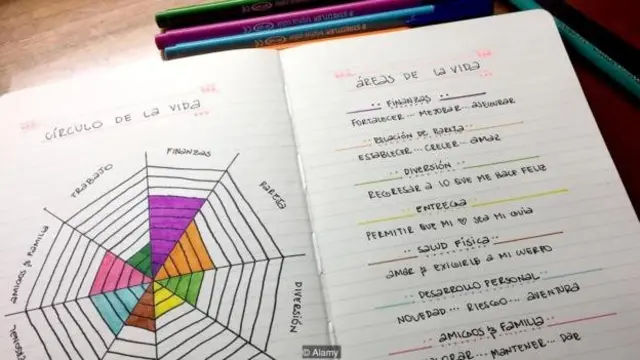 CÍRCULO DE LA VIDA
FINANZAS
PAREJA
DIVERSIÓN
TRABAJO
AMIGOS & FAMILIA
ÁREAS DE LA VIDA
FINANZAS
FORTALECER... MEJORAR... ASEGURAR
RELACIÓN DE PAREJA
ESTABLECER... CRECER... AMAR
DIVERSIÓN
REGRESAR A LO QUE ME HACE FELIZ
ENTREGA
PERMITIR QUE MI ♡ SEA MI GUIA
SALUD FÍSICA
AMAR & EXIGIRLE A MI CUERPO
DESARROLLO PERSONAL
NOVEDAD... RIESGO... AVENTURA
AMIGOS & FAMILIA
MANTENER... DAR
© Alamy